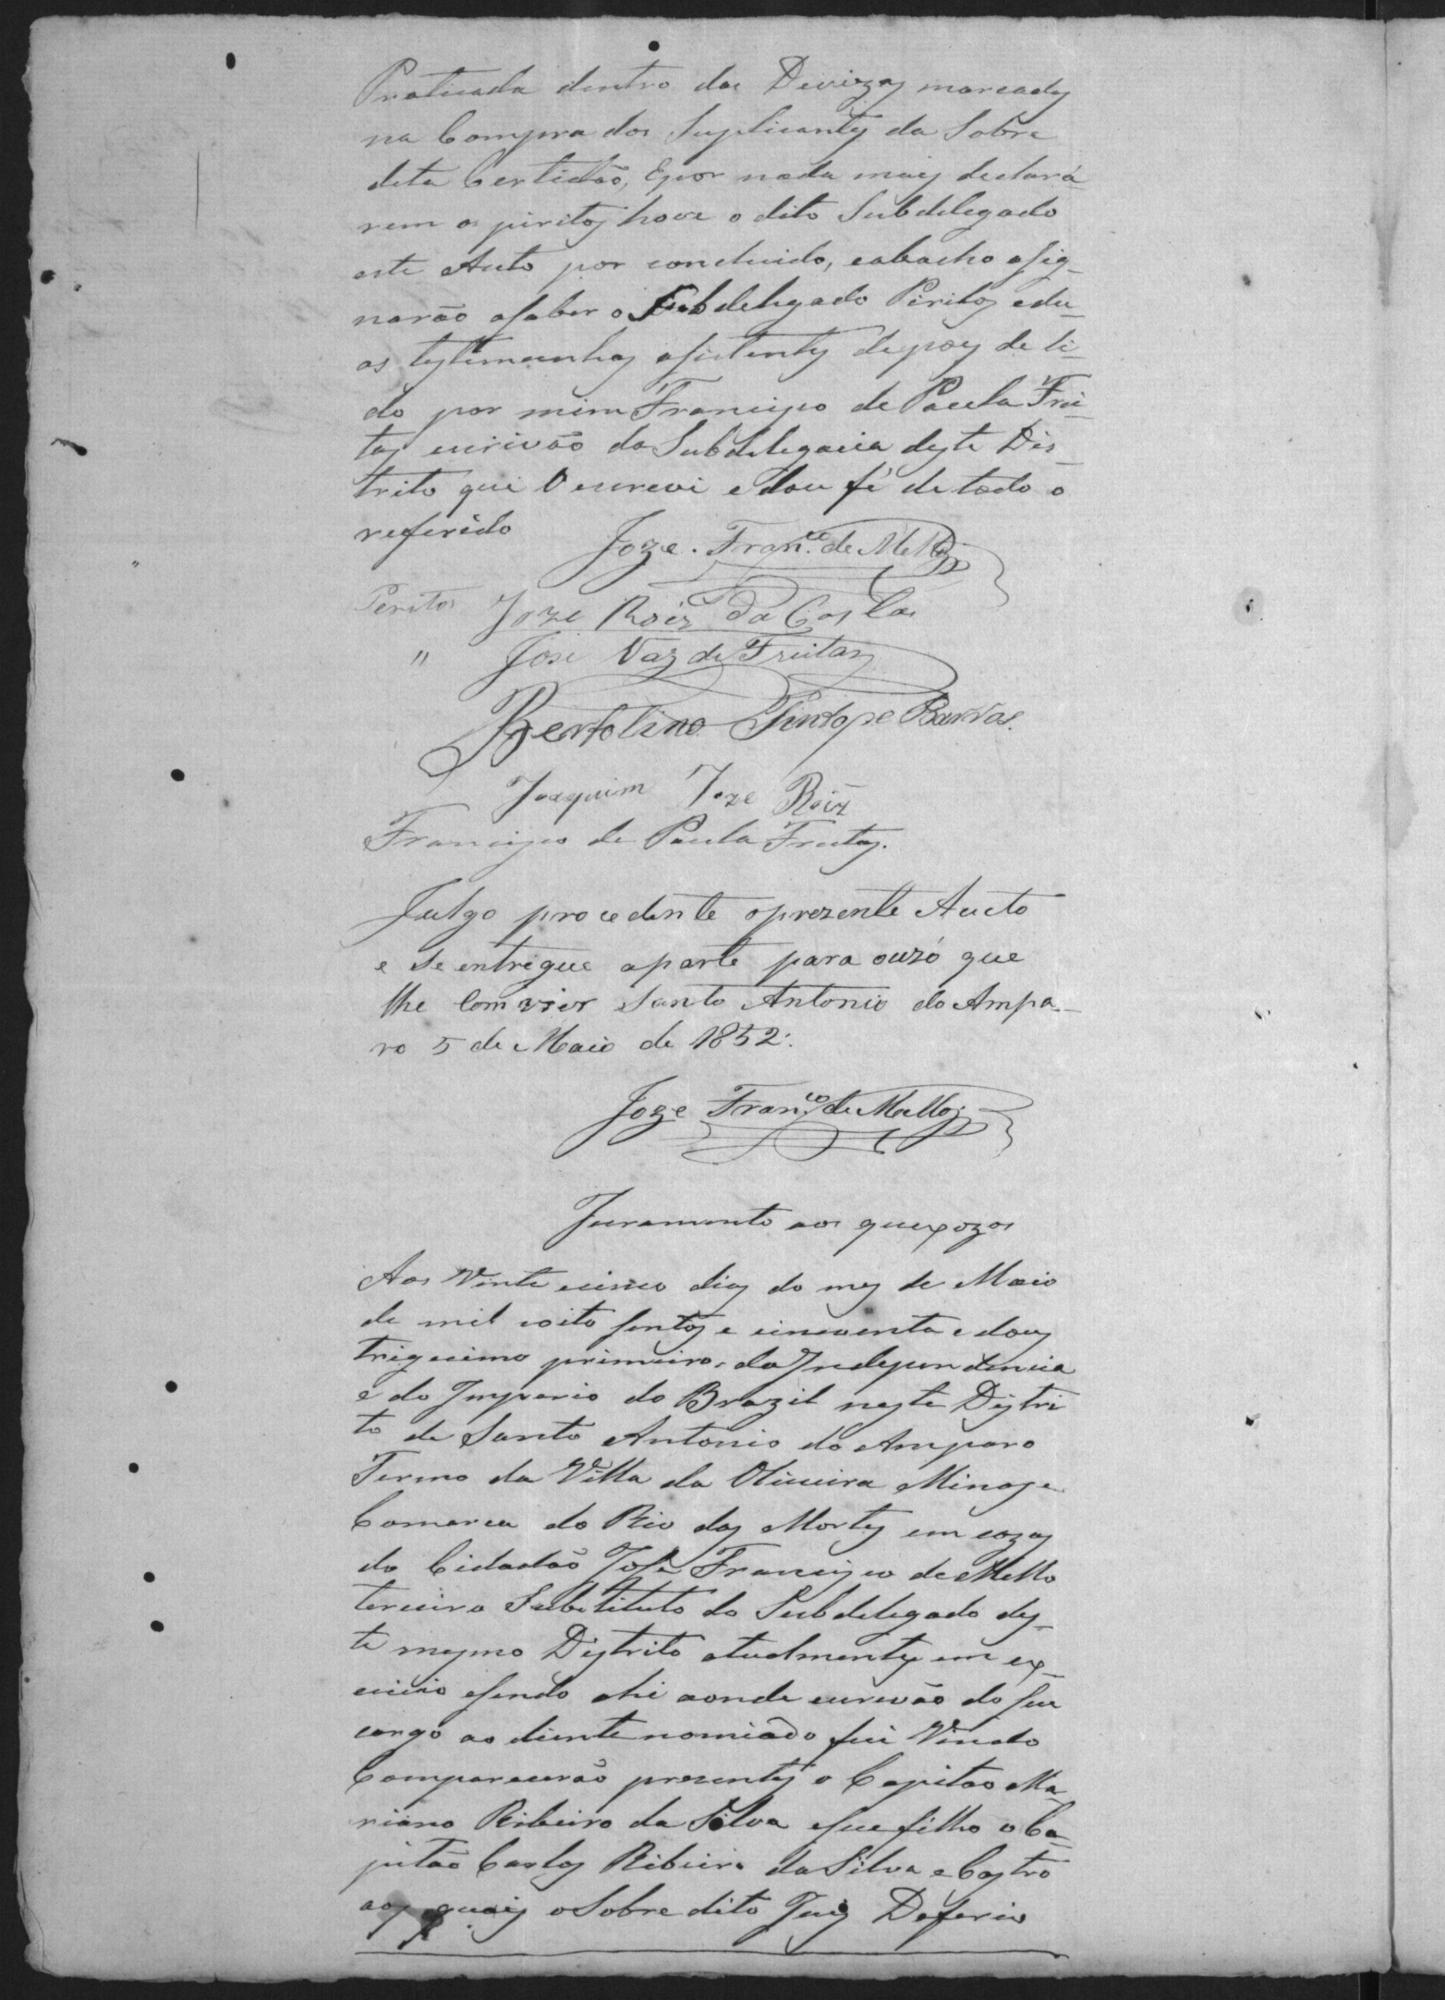 Praticada dentro das Devizas marcadas
na Compra dos Suplicantes da Sobre
dita Certidão, Epor nada mais declará
rem os piritos houve o dito Subdelegado
este Auto por concluido, eabacho asig-
narão asaber o Subdelegado Piritos edu-
as testimunhas asistentes depois de li-
do por mim Francisco de Paula Frei-
tas escrivão da Subdelegacia deste Dis-
trito que O escrevi e dou fé de todo o
referido Joze Fran.co de Mello
Peritos Joze Roiz da Costa
" José Vaz de Freitas
Bertolino Barros.
Joaquim Joze Roiz
Francisco de Paula Freitas.
Julgo procedente oprezente Aucto
e se entregue aparte para ouzó que
lhe Comvier Santo Antonio do Ampa-
ro 5 de Maio de 1852.
Joze Fran.co de Mello
Juramento aos queixozos
Aos Vinte ecinco dias do mes de Maio
de mil eoito sentos e cincoenta e dous
trigecimo primeiro da Independencia
e do Imperio do Brazil neste Distri
to de Santo Antonio do Amparo
Termo da Villa da Oliveira Minas e
Comarca do Rio das Mortes em cazas
do Cidadão José Francisco de Mello
terceiro Substituto do Subdelegado des-
te mesmo Distrito atualmente em ex-
ercicio esendo ahi aonde escrivão do seu
cargo ao diente nomiado fui Vindo
Comparecerão presentes o Capitão Ma-
riano Ribeiro da Silva eseu filho o Ca-
pitão Carlos Ribeiro da Silva e Castro
aos quais oSobre dito Juiz Deferio